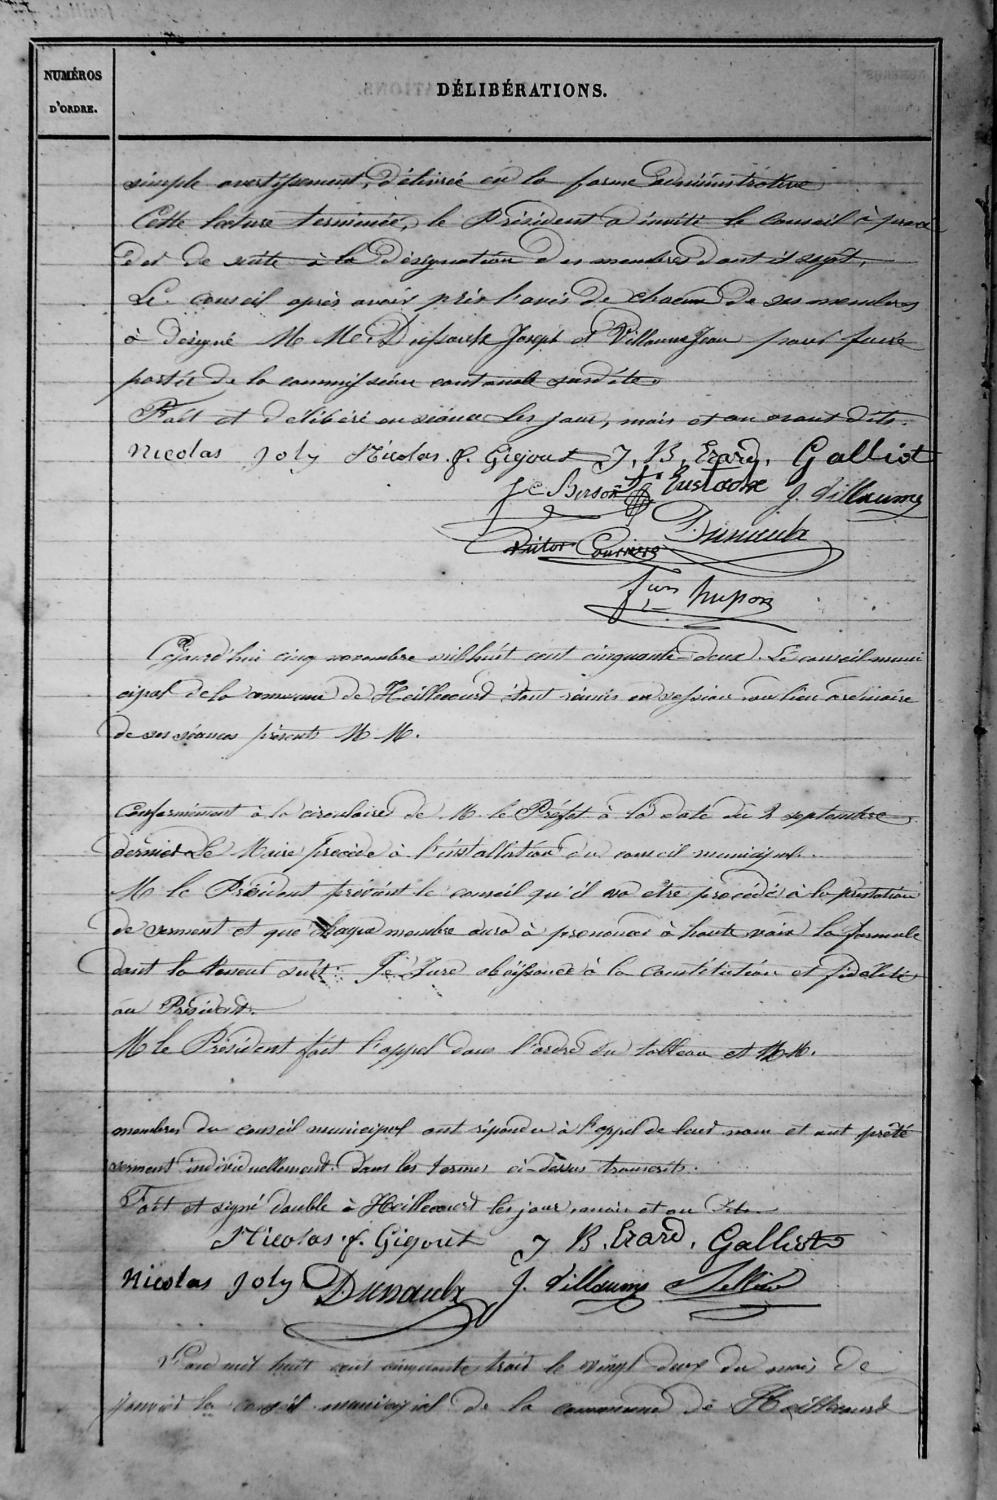 NUMÉROS
D'ORDRE.
DÉLIBÉRATIONS.
simple avertissement, délivrée en la forme administrative
Cette lecture terminée, le Président a invité le Conseil à procé
der de suite à la désignation des membres dont il s'agit,
Le conseil après avoir pris l'avis de chacun de ses membres
à désigné M M. Joseph et Villaume Jean pour faire
partie de la commission cantonale susdite.
Fait et délibéré en séance les jour, mois et an avant dits.
Nicolas Joly Nicolas. f. Gigout J. B. Erard. Galliot
J C Berson Eustache J. Villaume
Victor Dussaulx
fois hupon
Cejourd'hui cinq novembre mil huit cent cinquante-deux. Le conseil muni
cipal de la commune de Heillecourt étant réunis en session au lieu ordinaire
de ses séances présents M M.
Conformément à la circulaire de M le Préfet à la date du 2 septembre
dernier Le Maire procède à l'installation du conseil municipal.
M le Président prévient le conseil qu'il va être procédé à la prestation
de serment et que chaque membre aura à prononcer à haute voix la formule
dont la teneur suit: Je Jure obéissance à la constitution et fidélité
au Président.
M le Président fait l'appel dans l'ordre du tableau et M M.
membres du conseil municipal ont répondu à l'appel de leur nom et ont prêté
serment individuellement dans les termes ci-dessus transcrits.
Fait et signé double à Heillecourt les jour, mois et an dits
Nicolas. f. Gigout J B. Erard. Galliot
Nicolas Joly Dussaulx J. Villaume Sellier
L'an mil huit cent cinquante trois le vingt deux du mois de
janvier le conseil municipal de la commune de Heillecourt